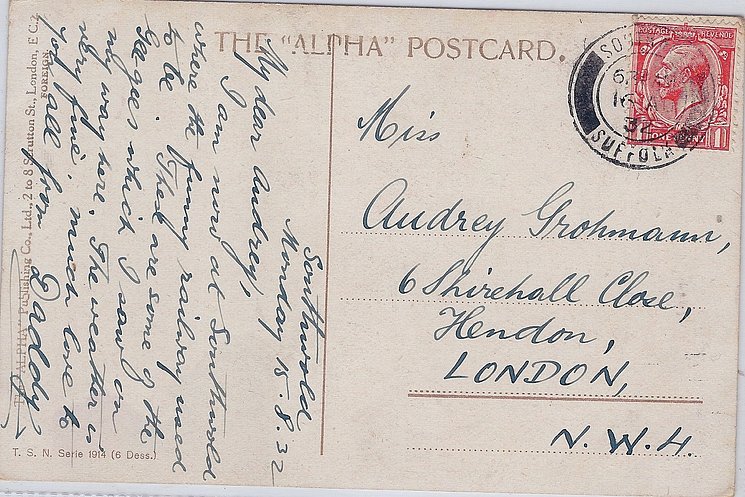 THE "ALPHA" POSTCARD.
POSTAGE REVENUE
1 ONE PENNY 1
16 
32
SUFFOLK
Southwold
Monday 15.8.32
My dear Audrey,
I am now at Southwold
where the funny railway used
to be. These are some of the
which I saw on
my way here. The weather is
very fine. much love to
you all from Daddy
Miss
Audrey Grohmann,
6 Shirehall Close,
Hendon,
LONDON,
N.W.4.
The "ALPHA" Publishing Co., Ltd., 2 to 8 Scrutton St., London, E.C.2
FOREIGN.
T. S. N. Serie 1914 (6 Dess.)